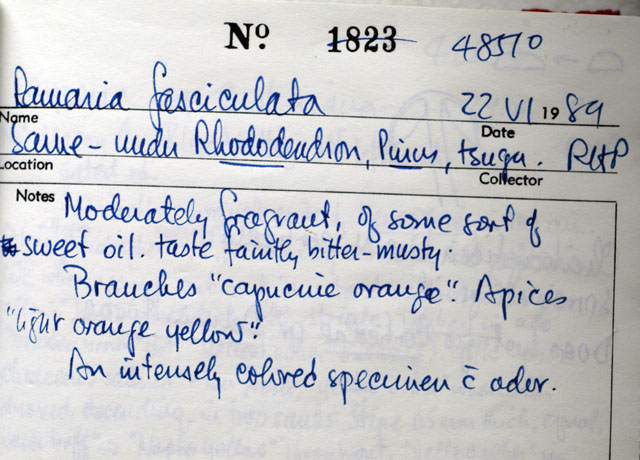 Nº 1823 48570
Ramaria fasciculata 22 VI 1989
Name Date
Same - under Rhododendron, Pinus, Tsuga. RHP
Location Collector
Notes Moderately fragrant, of some sort of
sweet oil. taste faintly bitter-musty
Branches "capucine orange". Apices
"light orange yellow".
An intensely colored specimen c̄ odor.